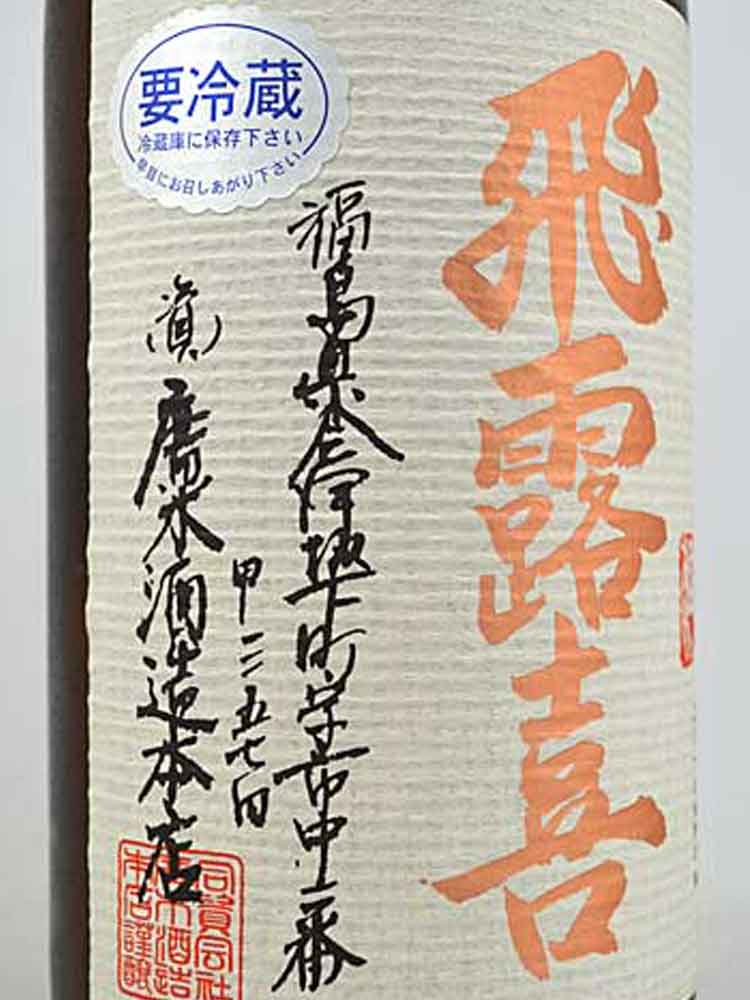 要冷蔵
冷蔵庫に保存下さい
早目にお召しあがり下さい
飛露喜
福島県会津坂下町字市中二番
甲三五七四
(資)廣木酒造本店
合資会社
廣木酒造
本店謹醸